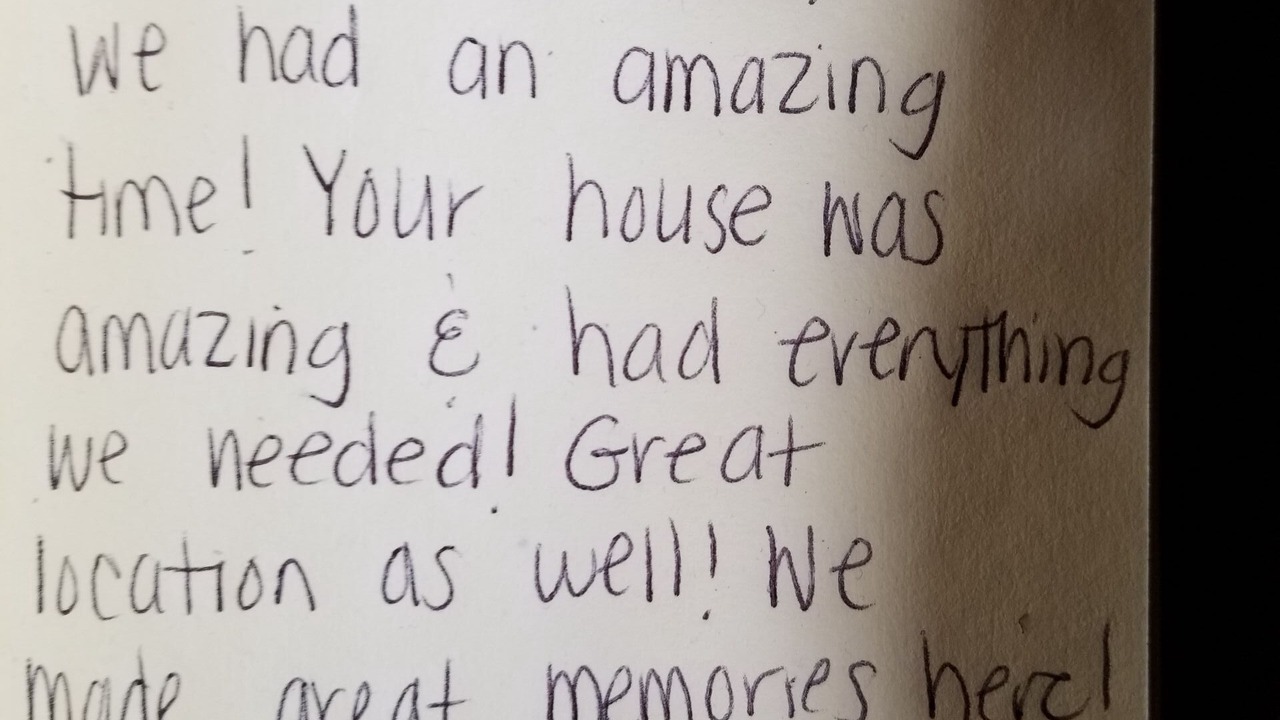 We had an amazing
time! Your house was
amazing & had everything
we needed! Great
location as well! We
made great memories here!